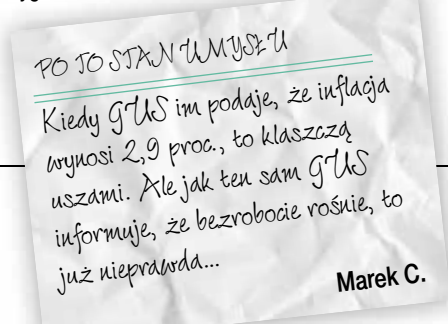 PO TO STAN UMYSŁU
Kiedy GUS im podaje, że inflacja
wynosi 2,9 proc., to klaszczą
uszami. Ale jak ten sam GUS
informuje, że bezrobocie rośnie, to
już nieprawda...
Marek C.